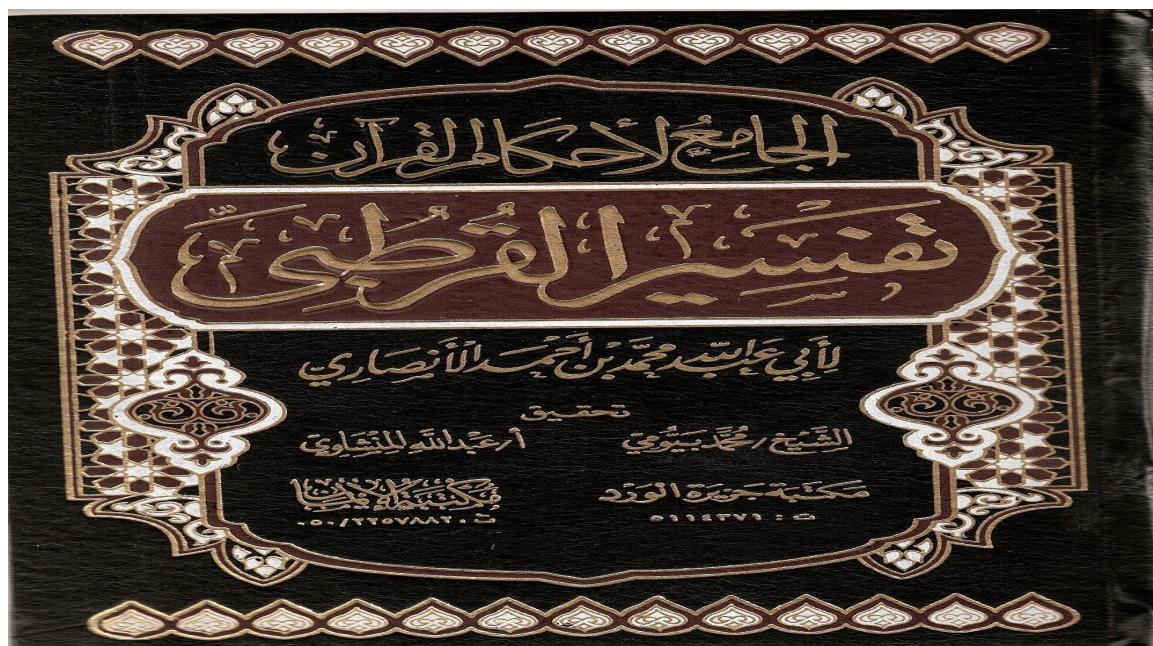 الجامع لأحكام القرآن
تفسير القرطبي
لأبي عبد الله محمد بن أحمد الأنصاري
تحقيق
الشيخ/ محمد بيومي أ/ عبد الله المنشاوي
مكتبة جزيرة الورد مكتبة الإيمان
ت : ٥١١٤٣٧١ ت ٠٥٠/٢٢٥٧٨٨٢